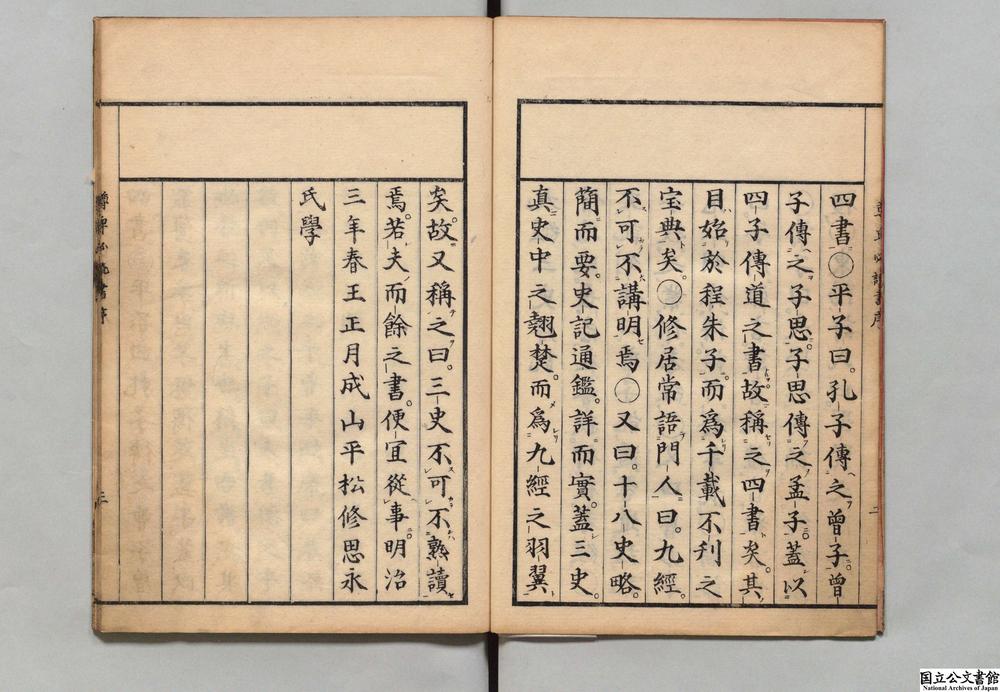 四書○平子曰。孔子傳之曾子。曾
子傳之子思。子思傳之孟子。蓋以
四子傳道之書故稱之四書矣。其
目始於程朱子。而爲千載不利之
宝典矣。○修居常語門人曰。九經。
不可不講明焉○又曰。十八史略。
簡而要。史記通鑑。詳而實。蓋三史。
真史中之翹楚。而爲九經之羽翼
矣。故又稱之曰。三史不可不熟讀
焉。若夫而餘之書。便宜從事。明治
三年春王正月成山平松修思永
氏學
二
三
国立公文書館
National Archives of Japan